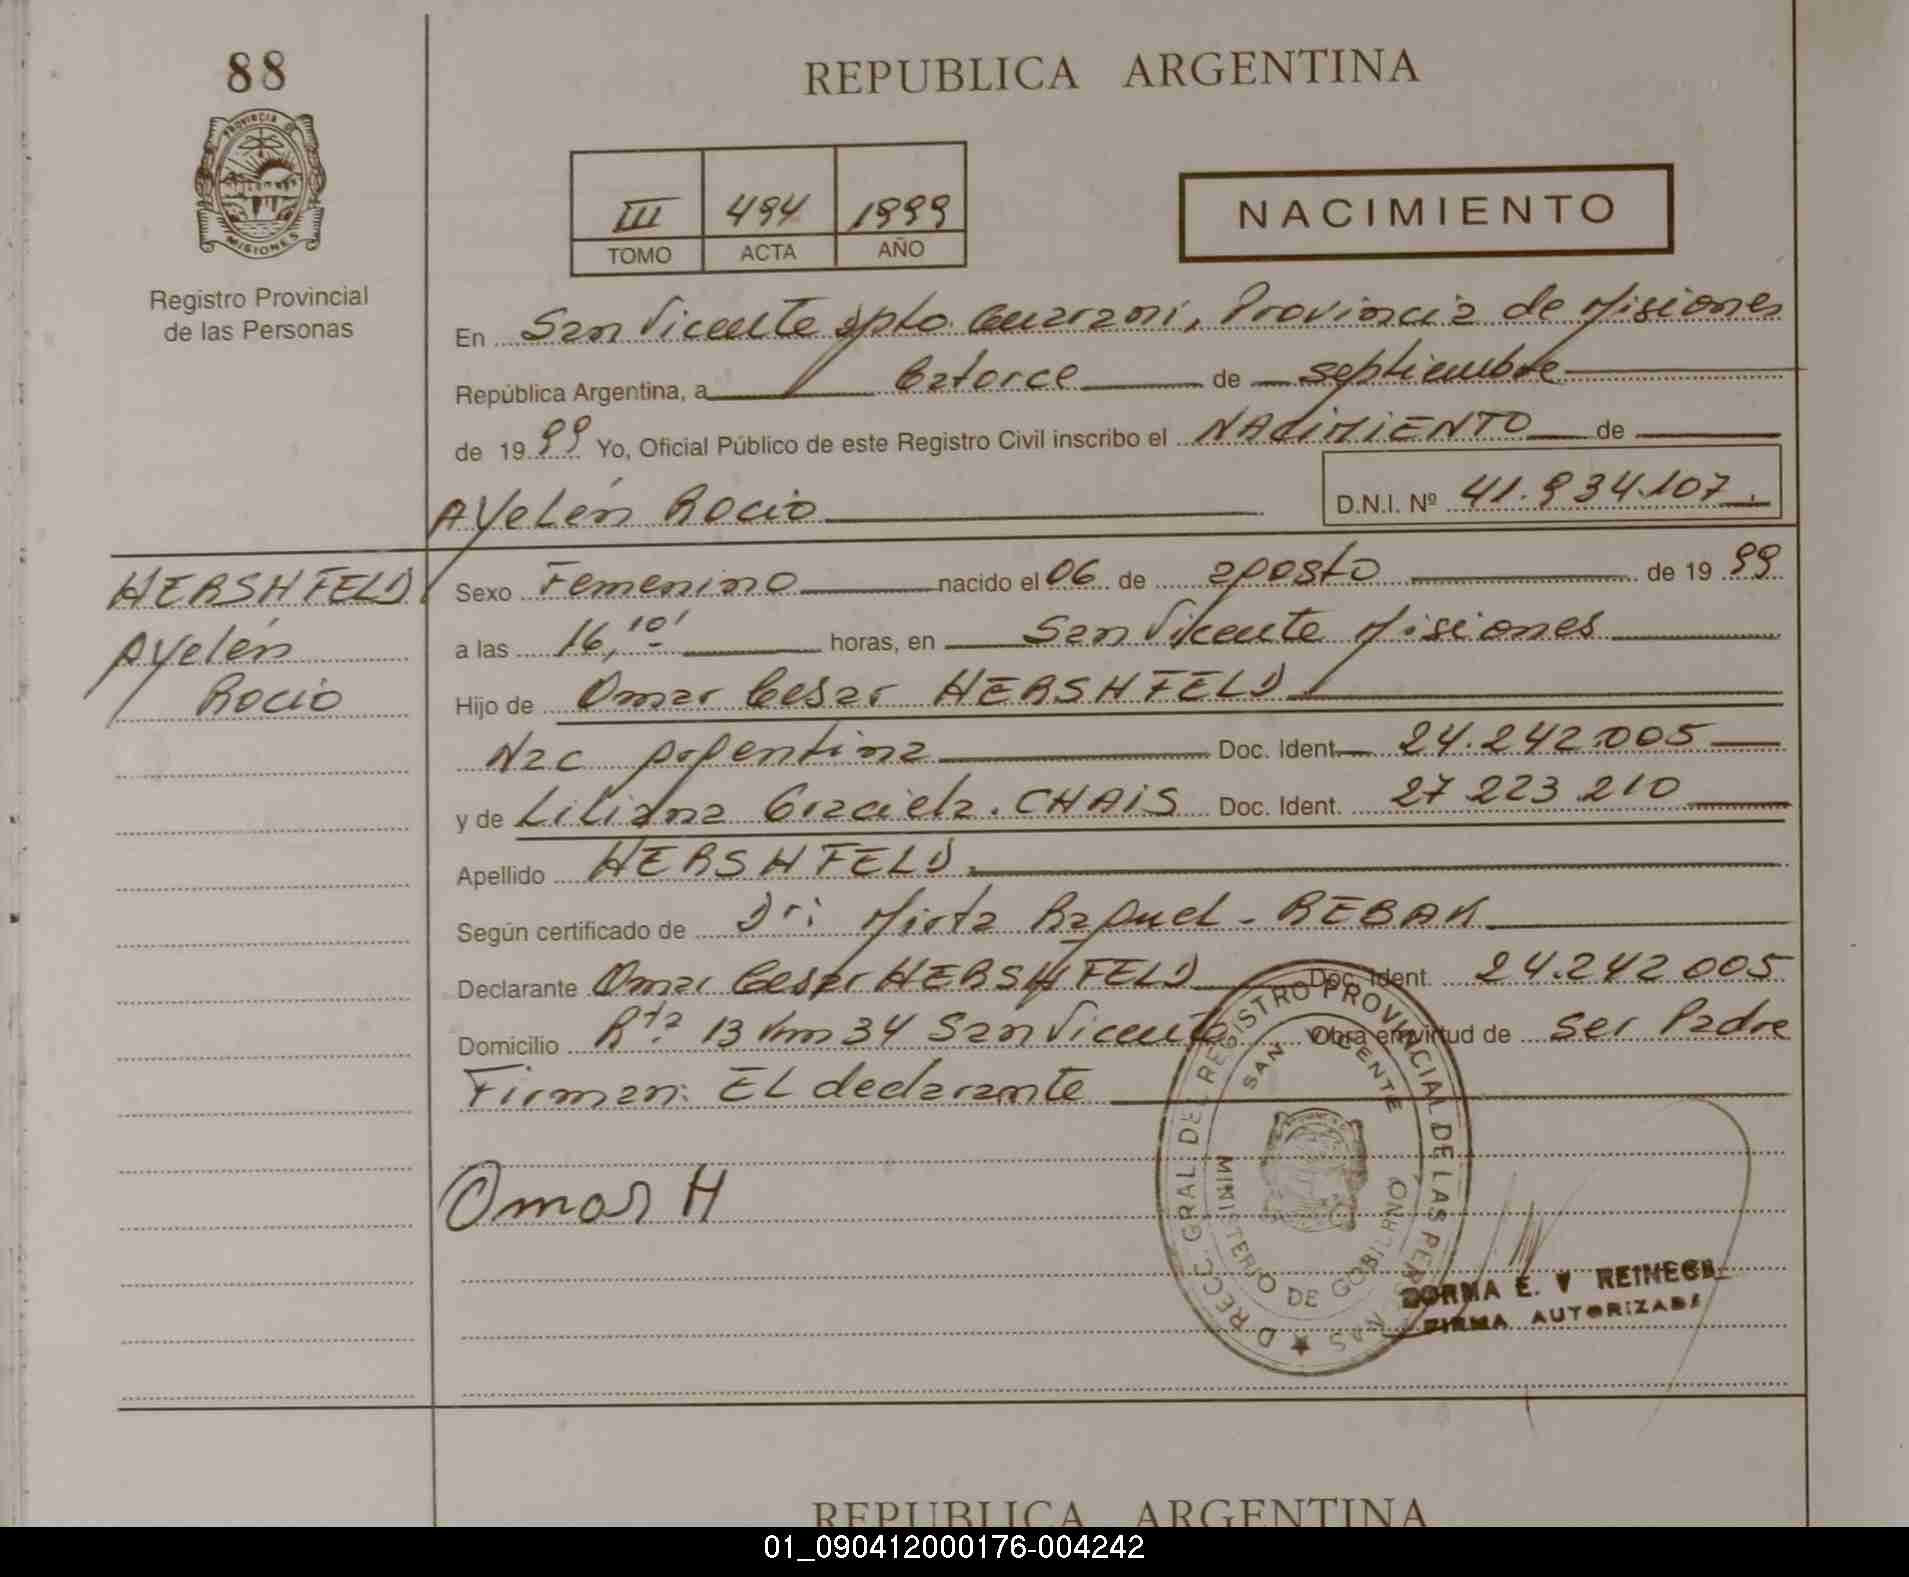 88
REPUBLICA ARGENTINA
PROVINCIA DE
MISIONES
Registro Provincial
de las Personas
III 494 1999
TOMO ACTA AÑO
NACIMIENTO
En San Vicente Dpto. Guarani, Provincia de Misiones
República Argentina, a Catorce de septiembre
de 1999 Yo, Oficial Público de este Registro Civil inscribo el NACIMIENTO de
AYelén Rocio D.N.I. Nº 41.934.107.
HERSHFELD
AYelén
Rocio
Sexo Femenino nacido el 06 de agosto de 1999
a las 16,10' horas, en San Vicente Misiones
Hijo de Omar Cesar HERSHFELD
Nac Argentina Doc. Ident. 24.242.005
y de Liliana Graciela. CHAIS Doc. Ident. 27 223 210
Apellido HERSHFELD.
Según certificado de Dr: Mirta Raquel - REBAK
Declarante Omar Cesar HERSHFELD Doc. Ident. 24.242 005
Domicilio Rta 13 km 34 San Vicente Obra en virtud de ser Padre
Firman: EL declarante
Omar H
D RECC. GRAL DEL REGISTRO PROVINCIAL DE LAS PERSONAS
SAN VICENTE
MINISTERIO DE GOBIERNO
NORMA E. V REINECK
FIRMA AUTORIZADA
REPUBLICA ARGENTINA
01_090412000176-004242